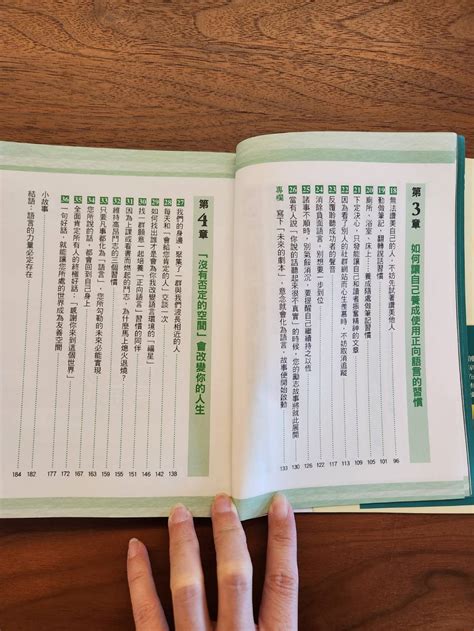 第3章 如何讓自己養成使用正向語言的習慣
18 無法讚美自己的人，不妨先試著讚美他人 96
19 勤做筆記，翻轉說話習慣 101
20 廁所、浴室、床上……養成隨處做筆記習慣 105
21 下定決心，只發能讓自己和讀者振奮精神的文章 109
22 因為看了別人的社群網站而心生羨慕時，不妨取消追蹤 113
23 反覆聆聽成功者的聲音 117
24 消除負面語言，別想要一步到位 122
25 諸事不順時，別氣餒消沉，要提醒自己繼續持之以恆 126
26 當有人說「你說的話聽起來很不真實」的時候，您的勵志故事將就此展開 130
專欄 寫下「未來的劇本」，意念就會化為語言，故事便開始啟動 133
第4章 「沒有否定的空間」會改變你的人生
27 我們的身邊，聚集了一群與我們波長相近的人 138
28 每天和「會給您肯定的人」交談一次 142
29 如何找出誰才是會為你我改變語言環境的「福星」 146
30 找一群願意一起培養「正向語言」習慣的同伴 151
31 因為上課或看書而燃起的鬥志，為什麼馬上熄火退燒？ 155
32 維持高昂鬥志的三個習慣 159
33 只要凡事都化為「語言」，您所勾勒的未來必能實現 163
34 您所說的話，都會回到自己身上 167
35 全面肯定所有人的終極好話：「感謝你來到這個世界」 172
36 一句好話，就能讓您所處的世界成為友善空間 177
小故事 182
結語：語言的力量必定存在 184